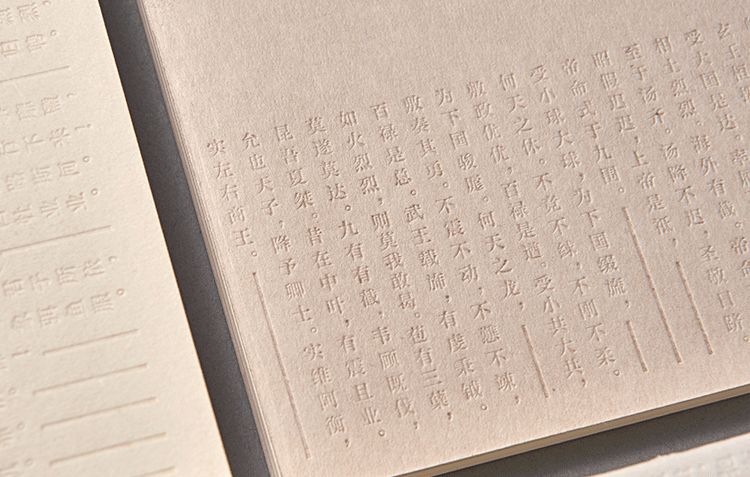 受大国是达
相土烈烈。海外有截。帝
至于汤齐。汤降不迟，圣敬日跻。
昭假迟迟，上帝是祗，
帝命式于九围。
受小球大球，为下国缀旒，
何天之休。不竞不絿，不刚不柔。
敷政优优，百禄是遒 受小共大共，
为下国骏厖。何天之龙，
敷奏其勇。不震不动，不戁不竦，
百禄是总。武王载旆，有虔秉钺。
如火烈烈，则莫我敢曷。苞有三蘖，
莫遂莫达。九有有截，韦顾既伐，
昆吾夏桀。昔在中叶，有震且业。
允也天子，降予卿士。实维阿衡，
实左右商王。